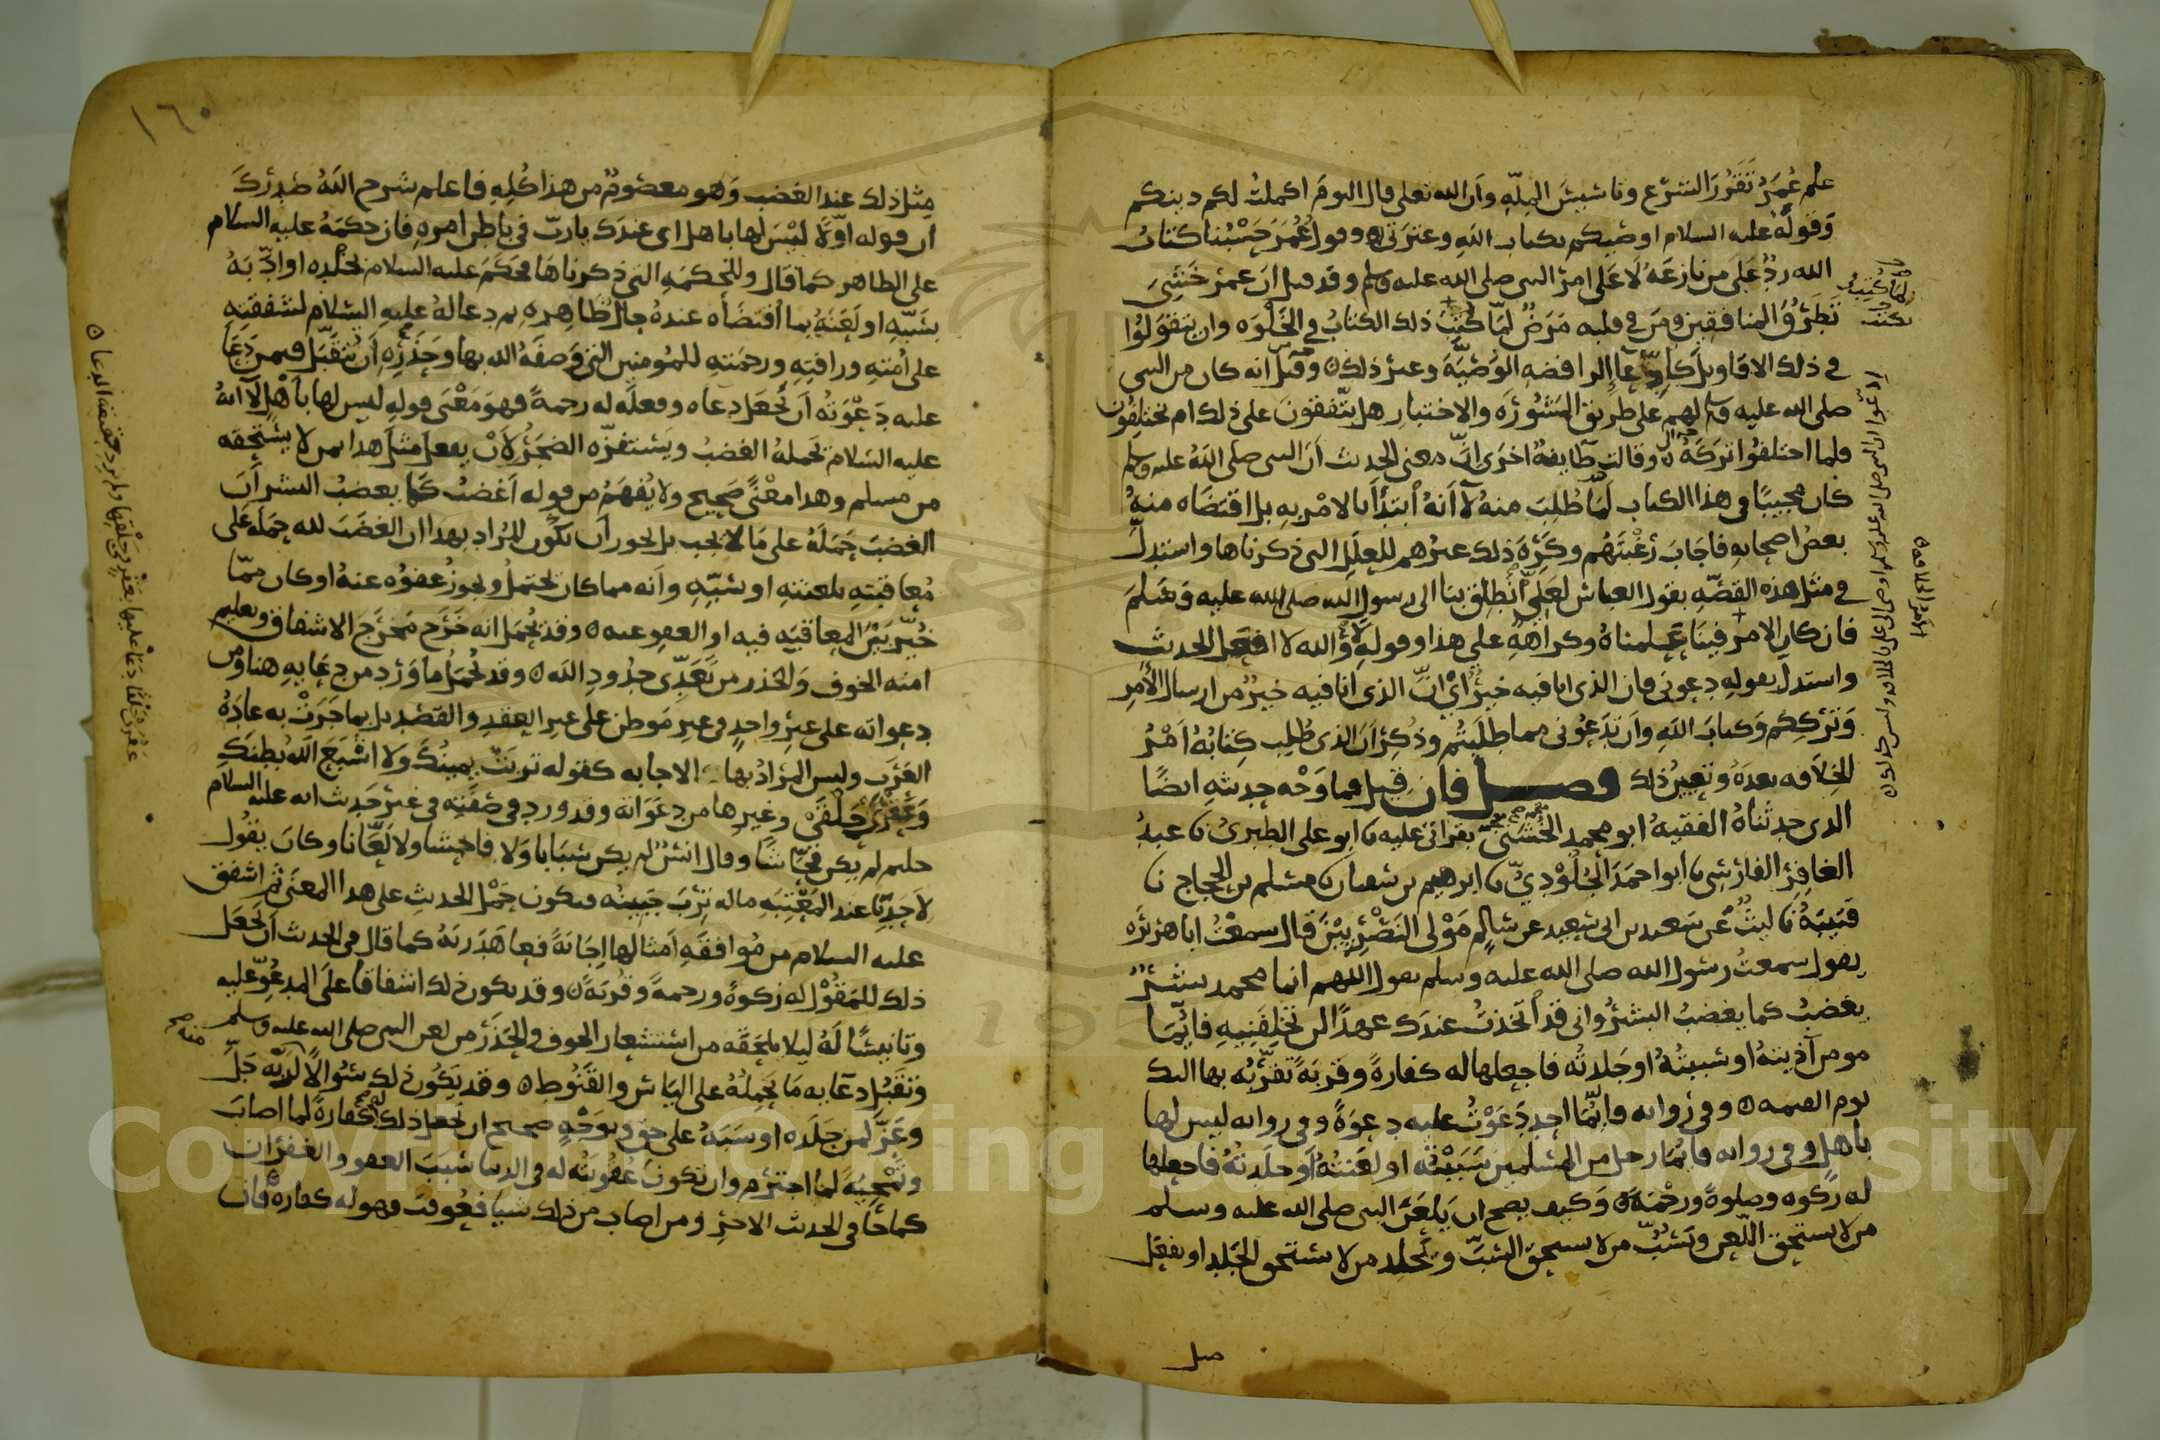 علم عمر تقرر الشرع وتاسيس الملة وان الله تعلى قال اليوم اكملت لكم دينكم
وقوله عليه السلام اوصيكم بكتاب الله وعترتي وقول عمر حسبنا كتاب
الله رد على من نازعه لا على امر النبي صلى الله عليه وسلم وقد قيل ان عمر خشي
تطرق المنافقين ومن في قلبه مرض لما كتب ذلك الكتاب في الخلوة وان يتقولوا
في ذلك الاقاويل كادعاء الرافضة الوصية وغير ذلك وقيل انه كان من النبي
صلى الله عليه وسلم لهم على طريق المشورة والاختبار هل يتفقون على ذلك ام يختلفون
فلما اختلفوا تركه وقالت طايفة اخرى ان معنى الحديث ان النبي صلى الله عليه وسلم
كان مجيبا في هذا الكتاب لما طلب منه لا انه ابتدا بالامر به بل اقتضاه منه
بعض اصحابه فاجاب رغبتهم وكره ذلك غيرهم للعلل التي ذكرناها واستدل
في مثل هذه القصة بقول العباس لعلي انطلق بنا الى رسول الله صلى الله عليه وسلم
فان كان الامر فينا علمناه وكراهة علي هذا وقوله والله لا افعل الحديث
واستدل بقوله دعوني فان الذي انا فيه خير اي ان الذي انا فيه خير من ارسال الامر
وترككم وكتاب الله وان تدعوني مما طلبتم وذكر ان الذي طلب كتابه امر
الخلافة بعده وتعيين ذلك فصل فان قيل فما وجه حديثه ايضا
الذي حدثناه الفقيه ابو محمد الخشني بقراتي عليه نا ابو علي الطبري نا عبد
الغافر الفارسي نا ابو احمد الجلودي نا ابرهيم بن سفيان نا مسلم بن الحجاج نا
قتيبة نا ليث عن سعيد بن ابي سعيد عن سالم مولى النصريين قال سمعت ابا هريرة
يقول سمعت رسول الله صلى الله عليه وسلم يقول اللهم انما محمد بشر
يغضب كما يغضب البشر واني قد اتخذت عندك عهدا لن تخلفنيه فايما
مومن آذيته او سببته او جلدته فاجعلها له كفارة وقربة تقربه بها اليك
يوم القيمة وفي رواية فايما احد دعوت عليه دعوة وفي رواية ليس لها
باهل وفي رواية فايما رجل من المسلمين سببته او لعنته او جلدته فاجعلها
له زكوة وصلوة ورحمة وكيف يصح ان يلعن النبي صلى الله عليه وسلم
من لا يستحق اللعن ويسب من لا يستحق السب ويجلد من لا يستحق الجلد او يفعل
مثل
لما كتب
ادعوا ان النبي صلى الله عليه وسلم اوصى الى علي بالخلافة وليس كذلك
امر الخلافة
١٦٠
مثل ذلك عند الغضب وهو معصوم من هذا كله فاعلم شرح الله صدرك
ان قوله اولا ليس لها باهل اي عندك يا رب في باطن امره فان حكمه عليه السلام
على الظاهر كما قال وللحكمة التي ذكرناها فحكم عليه السلام بجلده او ادبه
بسبه او لعنه بما اقتضاه عنده حال ظاهره ثم دعا له عليه السلام لشفقته
على امته ورافته ورحمته للمومنين التي وصفه الله بها وحذره ان يتقبل فيمن دعا
عليه دعوته ان يجعل دعاه وفعله له رحمة فهو معنى قوله ليس لها باهل لا انه
عليه السلام يحمله الغضب ويستفزه الضجر لان يفعل مثل هذا بمن لا يستحقه
من مسلم وهذا معنى صحيح ولا يفهم من قوله اغضب كما يغضب البشر ان
الغضب حمله على ما لا يجب بل يجوز ان يكون المراد بهذا ان الغضب لله حمله على
معاقبته بلعنته او سبه وانه مما كان يحتمل ويجوز عفوه عنه او كان مما
خير بين المعاقبة فيه او العفو عنه وقد يحمل انه خرج مخرج الاشفاق وتعليم
امته الخوف والحذر من تعدي حدود الله وقد يحمل ما ورد من دعايه هنا ومن
دعواته على غير واحد في غير موطن على غير العقد والقصد بل بما جرت به عادة
العرب وليس المراد بها الاجابة كقوله تربت يمينك ولا اشبع الله بطنك
وعقرى حلقى وغيرها من دعواته وقد ورد في صفته في غير حديث انه عليه السلام
لم يكن فحاشا وقال انس لم يكن سبابا ولا فاحشا ولا لعانا وكان يقول
لاحدنا عند المعتبة ما له ترب جبينه فيكون حمل الحديث على هذا المعنى ثم اشفق
عليه السلام من موافقة امثالها اجابة فعاهد ربه كما قال في الحديث ان يجعل
ذلك للمقول له زكوة ورحمة وقربة وقد يكون ذلك اشفاقا على المدعو عليه
وتانيسا له ليلا يلحقه من استشعار الخوف والحذر من لعن النبي صلى الله عليه وسلم
وتقبل دعايه ما يحمله على الياس والقنوط وقد يكون ذلك سوالا لربه جل
وعز لمن جلده او سبه على حق وبوجه صحيح ان يجعل ذلك له كفارة لما اصاب
وتمحية لما اجترم وان تكون عقوبته له في الدنيا سبب العفو والغفران
كما جا في الحديث الاخر ومن اصاب من ذلك شيا فعوقب فهو له كفارة فان
عقرى حلقا دعا عليها بعقر وحلقها ولم يرد حقيقة الدعا